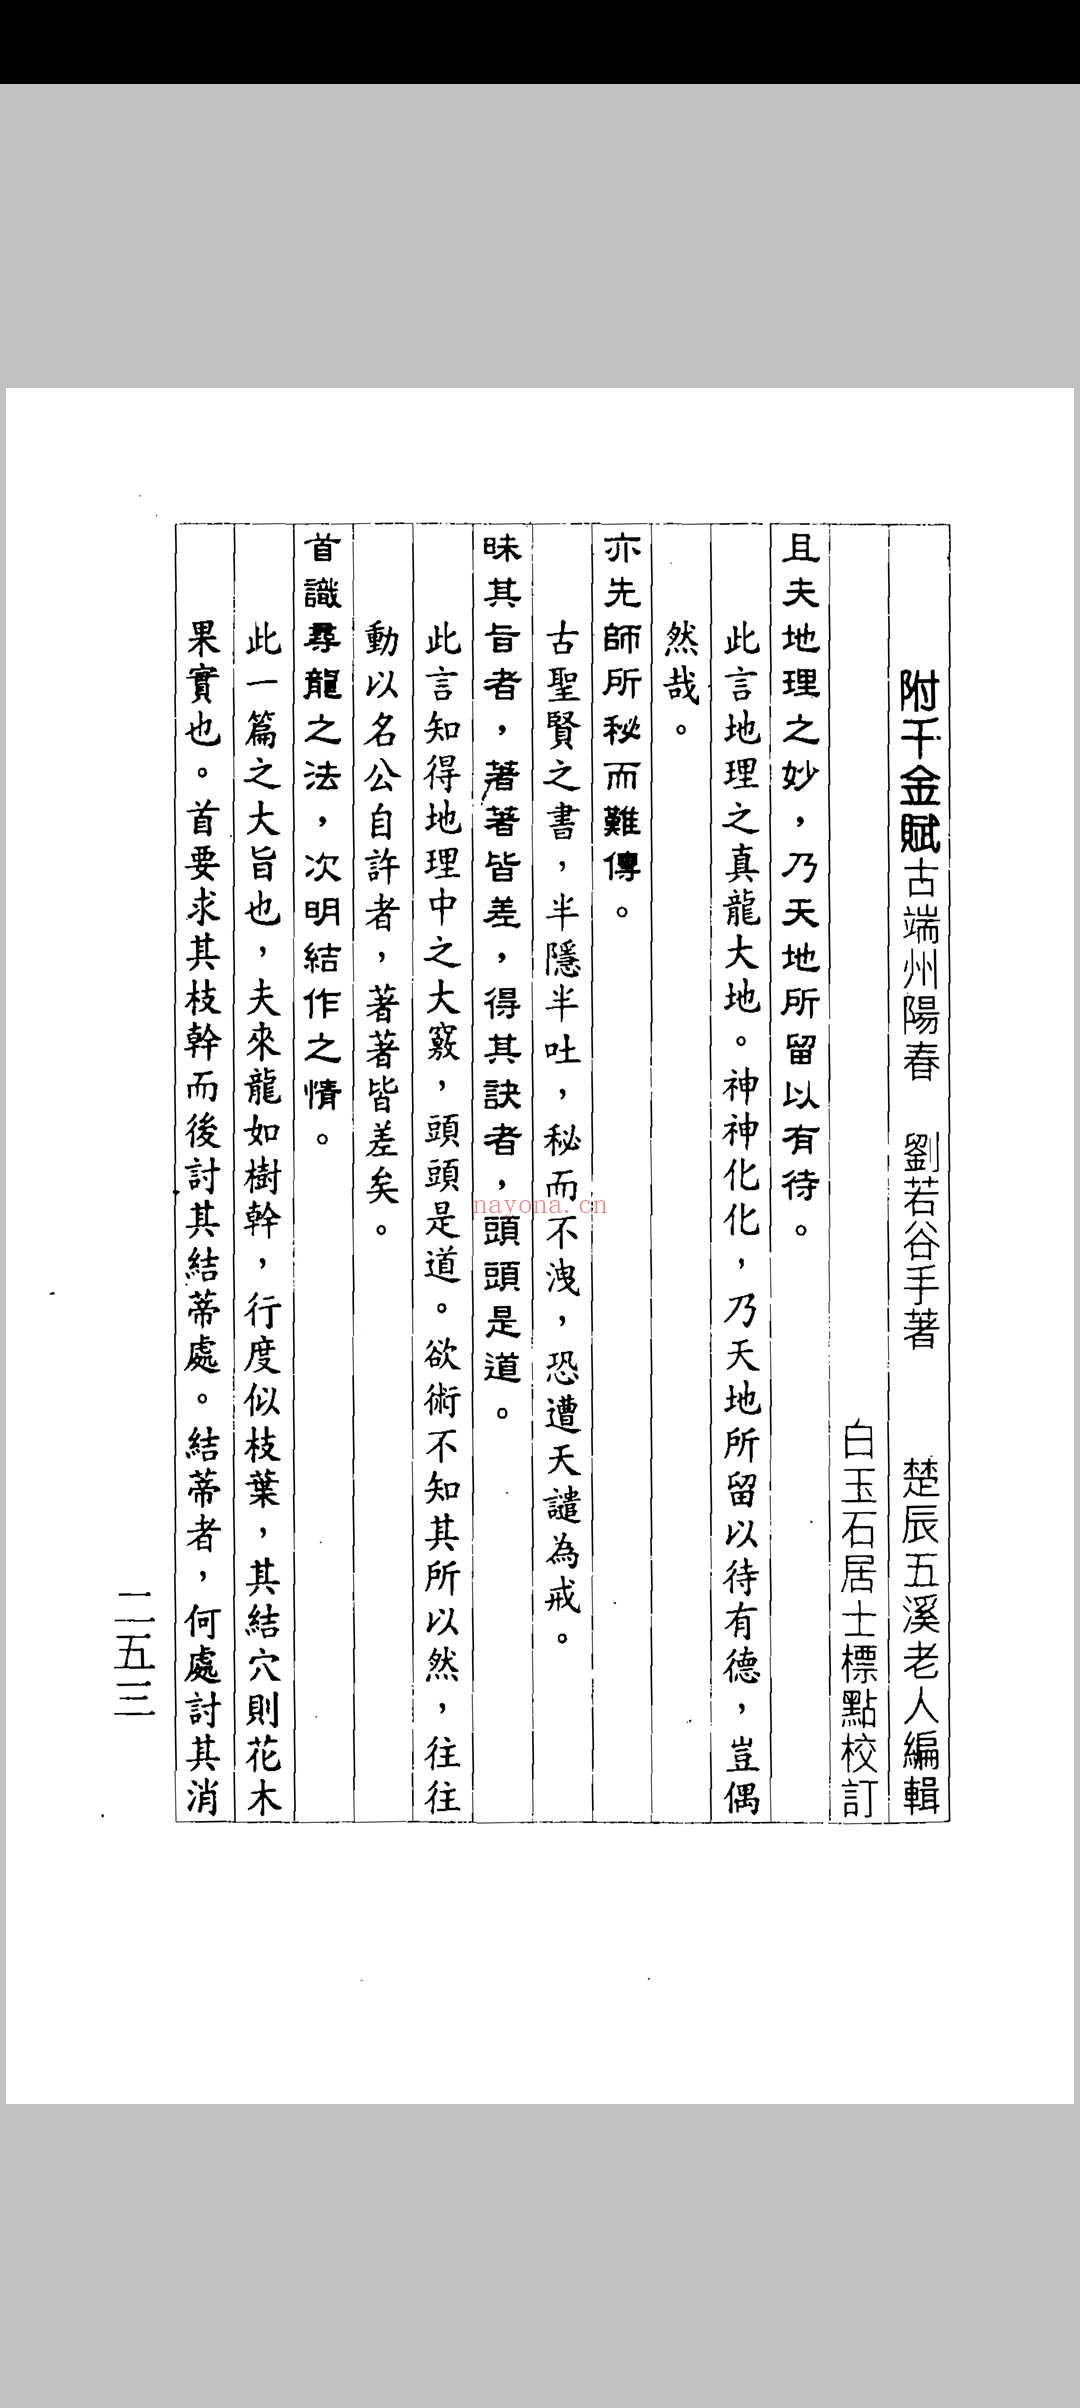 附千金賦古端州陽春　劉若谷手著　　楚辰五溪老人編輯
白玉石居士標點校訂
且夫地理之妙，乃天地所留以有待。
此言地理之真龍大地。神神化化，乃天地所留以待有德，豈偶
然哉。
亦先師所秘而難傳。
古聖賢之書，半隱半吐，秘而不洩，恐遭天譴為戒。
昧其旨者，著著皆差，得其訣者，頭頭是道。
此言知得地理中之大竅，頭頭是道。欲術不知其所以然，往往
動以名公自許者，著著皆差矣。
首識尋龍之法，次明結作之情。
此一篇之大旨也，夫來龍如樹幹，行度似枝葉，其結穴則花木
果實也。首要求其枝幹而後討其結蒂處。結蒂者，何處討其消
二五三
nayona.cn